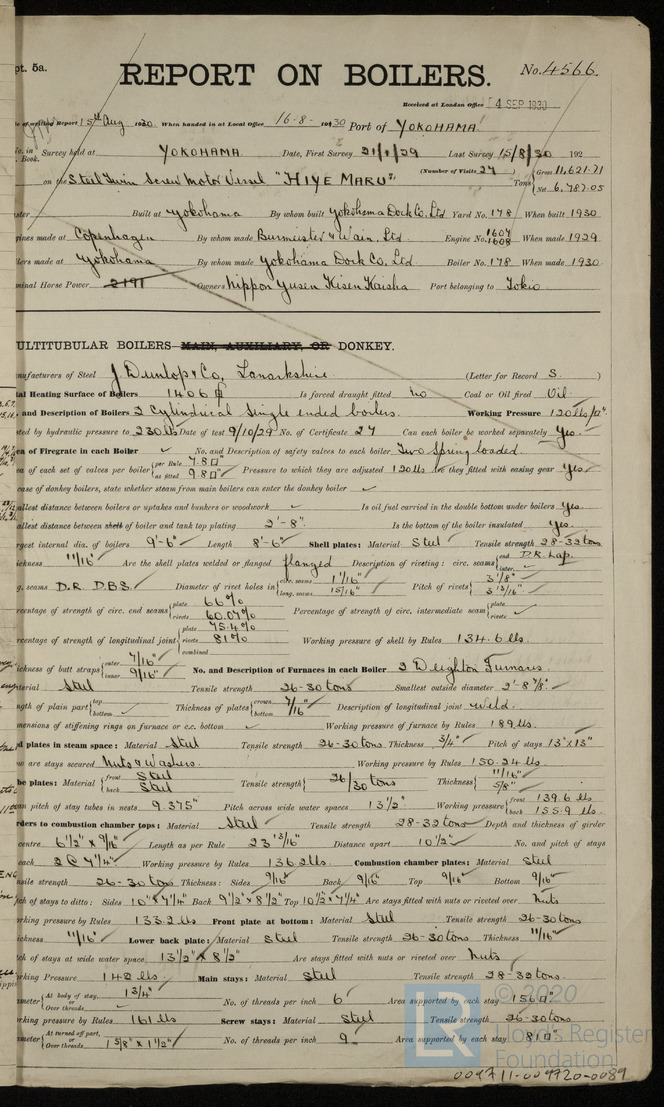 pt. 5a.
REPORT ON BOILERS.
No. 4566.
Received at London Office 4 SEP 1930
of writing Report 15th Aug 1930 When handed in at Local Office 16-8- 1930 Port of YOKOHAMA
No. in Book. Survey held at YOKOHAMA Date, First Survey 21/1/29 Last Survey 15/8/30 192
(Number of Visits 27)
on the Steel Twin Screw Motor Vessel "HIYE MARU" Tons Gross 11,621.71 Net 6,787.05
Built at Yokohama By whom built Yokohama Dock Co. Ltd Yard No. 178 When built 1930
gines made at Copenhagen By whom made Burmeister & Wain, Ltd. Engine No. 1607 1608 When made 1929
lers made at Yokohama By whom made Yokohama Dock Co. Ltd Boiler No. 178 When made 1930
minal Horse Power 2191 Owners Nippon Yusen Kisen Kaisha Port belonging to Tokio
ULTITUBULAR BOILERS MAIN, AUXILIARY, OR DONKEY.
nufacturers of Steel J Dunlop & Co, Lanarkshire. (Letter for Record S.)
tal Heating Surface of Boilers 1406 Is forced draught fitted No Coal or Oil fired Oil
and Description of Boilers 2 Cylindrical Single ended boilers. Working Pressure 120 lbs/□"
ted by hydraulic pressure to 230 lbs Date of test 9/10/29 No. of Certificate 27 Can each boiler be worked separately Yes.
ea of Firegrate in each Boiler ✓ No. and Description of safety valves to each boiler Two Spring loaded.
ea of each set of valves per boiler per Rule 7.8 □" as fitted 9.8 □" Pressure to which they are adjusted 120 lbs Are they fitted with easing gear Yes
case of donkey boilers, state whether steam from main boilers can enter the donkey boiler ✓
allest distance between boilers or uptakes and bunkers or woodwork ✓ Is oil fuel carried in the double bottom under boilers Yes
allest distance between shell of boiler and tank top plating 2'-8" Is the bottom of the boiler insulated Yes.
rgest internal dia. of boilers 9'-6" Length 8'-6" Shell plates: Material Steel Tensile strength 28-32 tons
ickness 11/16" Are the shell plates welded or flanged flanged Description of riveting: circ. seams end D.R. Lap. inter. ✓
g. seams D.R. D.B.S. Diameter of rivet holes in circ. seams 1 1/16" long. seams 15/16" Pitch of rivets 3 1/8" 3 13/16"
rcentage of strength of circ. end seams plate 66% rivets 60.07% Percentage of strength of circ. intermediate seam plate rivets ✓
rcentage of strength of longitudinal joint plate 75.4% rivets 81% combined Working pressure of shell by Rules 134.6 lbs.
ickness of butt straps outer 7/16" inner 9/16" No. and Description of Furnaces in each Boiler 2 Deighton Furnaces
aterial Steel Tensile strength 26-30 tons Smallest outside diameter 2'-8 7/8"
ngth of plain part top bottom ✓ Thickness of plates crown bottom 7/16" Description of longitudinal joint Weld.
mensions of stiffening rings on furnace or c.c. bottom ✓ Working pressure of furnace by Rules 189 lbs.
d plates in steam space: Material Steel Tensile strength 26-30 tons Thickness 3/4" Pitch of stays 13" x 13"
w are stays secured Nuts & Washers. Working pressure by Rules 150.24 lbs.
be plates: Material front Steel back Steel Tensile strength 26/30 tons Thickness 11/16" 5/8"
ean pitch of stay tubes in nests 9.375" Pitch across wide water spaces 13 1/2" Working pressure front 139.6 lbs back 155.9 lbs.
rders to combustion chamber tops: Material Steel Tensile strength 28-32 tons Depth and thickness of girder
centre 6 1/2" x 9/16" Length as per Rule 23 13/16" Distance apart 10 1/2" No. and pitch of stays
each 2 @ 7 1/4" Working pressure by Rules 136.2 lbs. Combustion chamber plates: Material Steel
nsile strength 26-30 tons Thickness: Sides 9/16" Back 9/16" Top 9/16" Bottom 9/16"
tch of stays to ditto: Sides 10" x 7 1/4" Back 9 1/2" x 8 1/2" Top 10 1/2" x 7 1/4" Are stays fitted with nuts or riveted over Nuts
rking pressure by Rules 133.2 lbs Front plate at bottom: Material Steel Tensile strength 26-30 tons
ickness 11/16" Lower back plate: Material Steel Tensile strength 26-30 tons Thickness 11/16"
tch of stays at wide water space 13 1/2" x 8 1/2" Are stays fitted with nuts or riveted over Nuts
rking Pressure 142 lbs. Main stays: Material Steel Tensile strength 28-32 tons.
meter At body of stay, or Over threads 1 3/4" No. of threads per inch 6 Area supported by each stay 156 □"
rking pressure by Rules 161 lbs Screw stays: Material Steel Tensile strength 26-30 tons
meter At turned off part, or Over threads 1 5/8" x 1 1/2" No. of threads per inch 9 Area supported by each stay 81 □"
© 2020
LR
Lloyd's Register
Foundation
009711-009720-0089